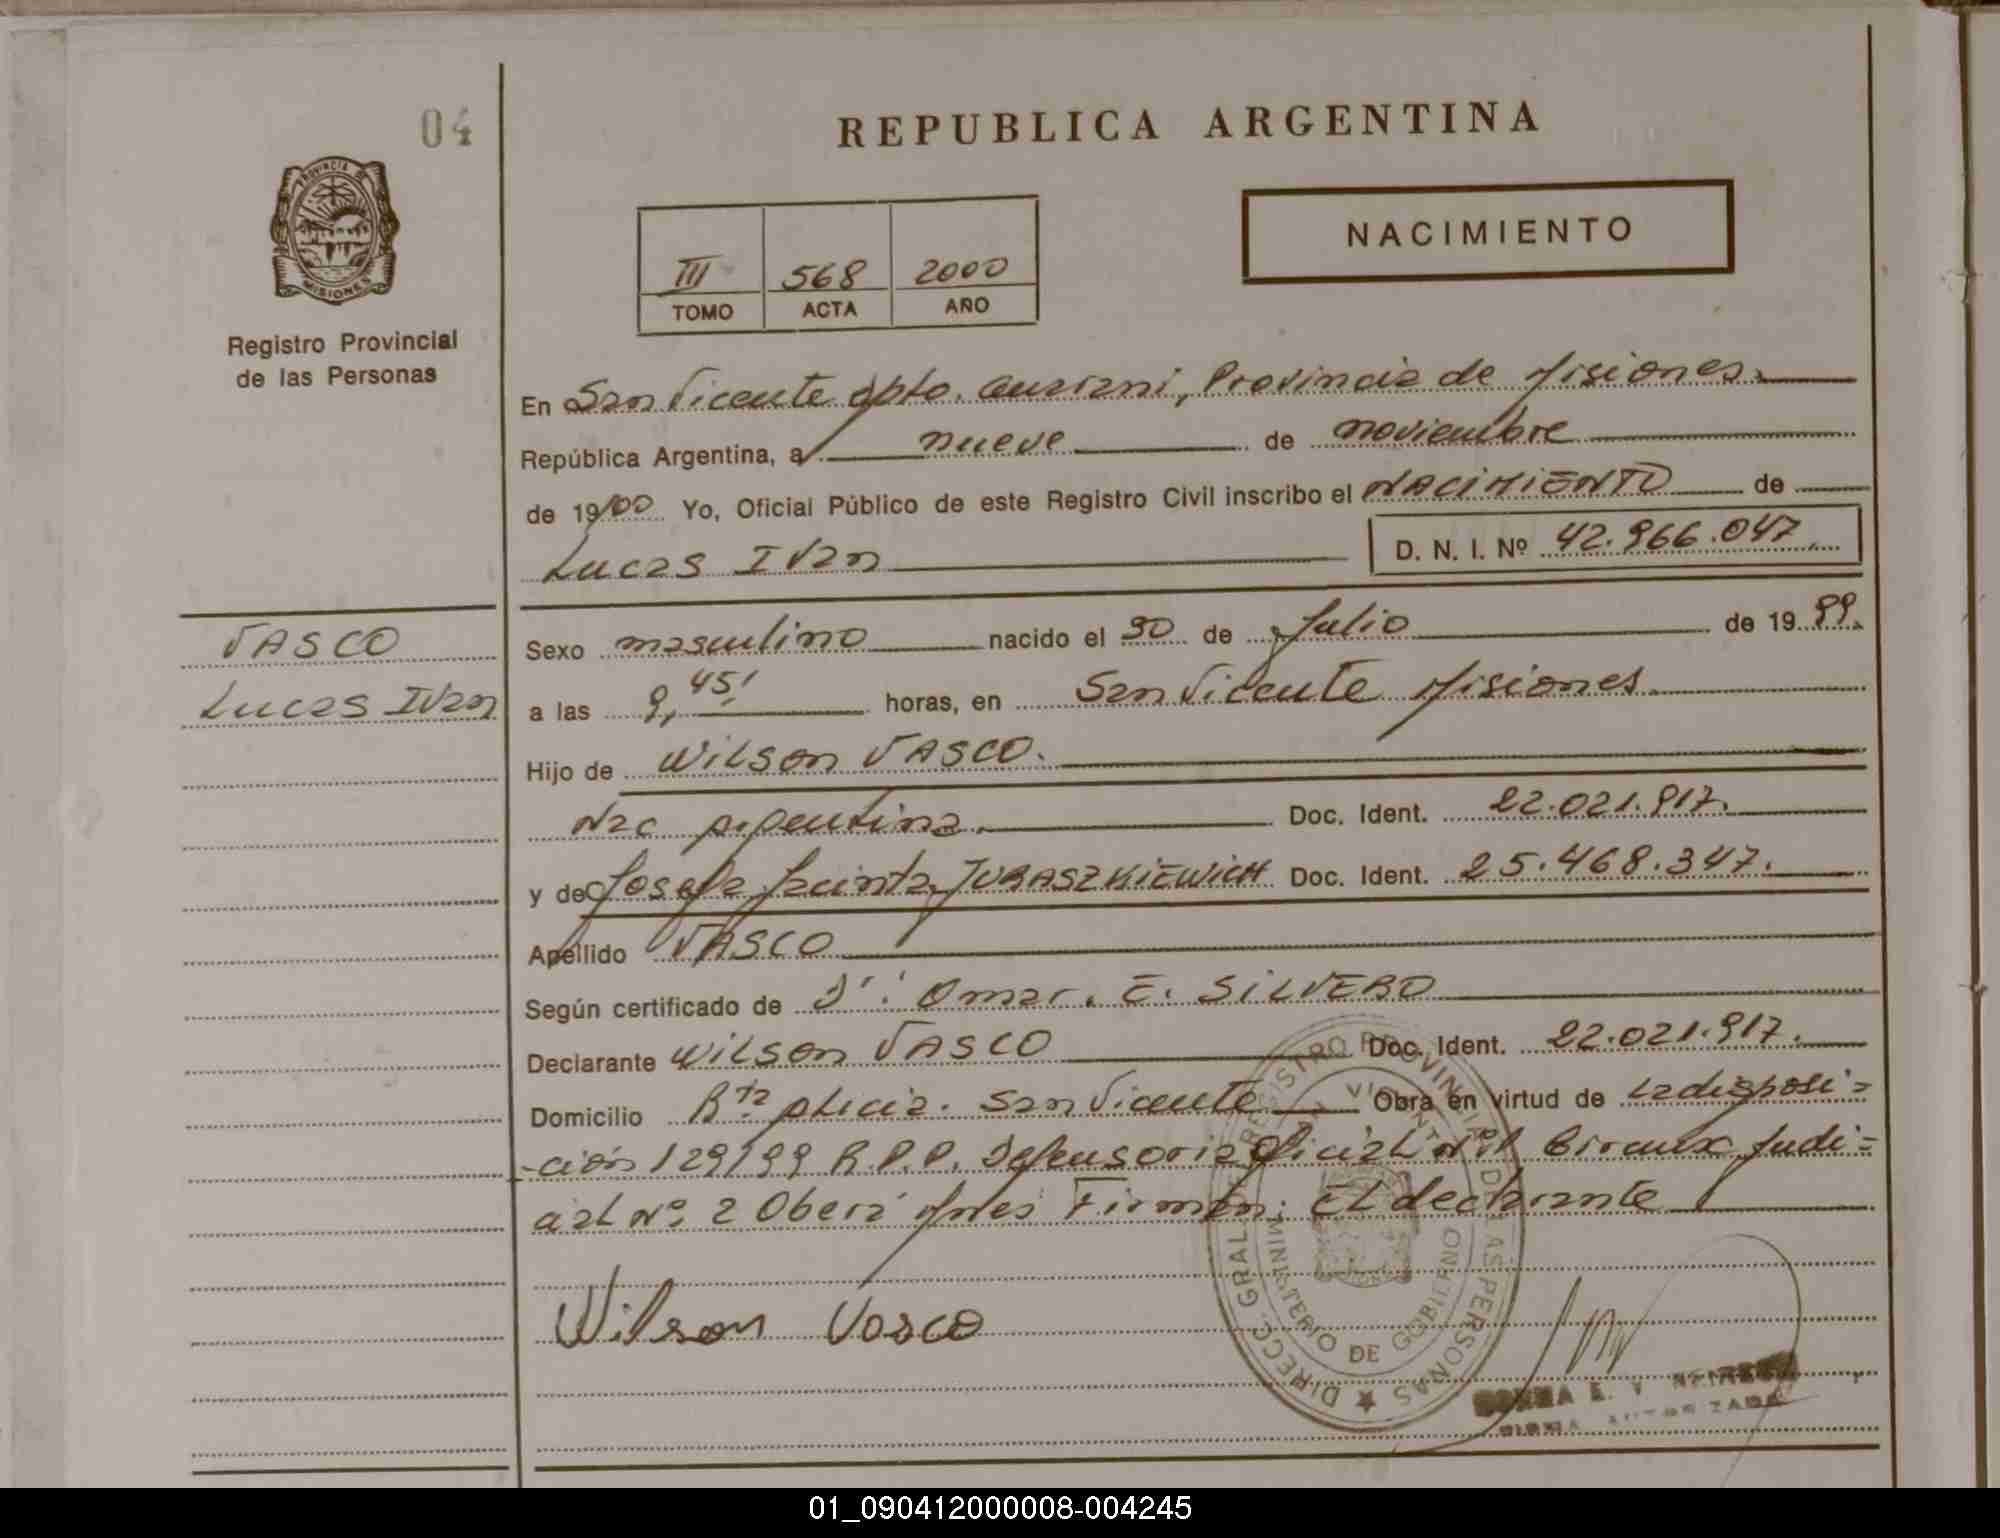 04
REPUBLICA ARGENTINA
PROVINCIA DE
MISIONES
Registro Provincial
de las Personas
III 568 2000
TOMO ACTA AÑO
NACIMIENTO
En San Vicente dpto. Guarani, Provincia de Misiones
República Argentina, a nueve de noviembre
de 19/00 Yo, Oficial Público de este Registro Civil inscribo el NACIMIENTO de
Lucas Ivan D. N. I. Nº 42.966.047
VASCO
Lucas Ivan
Sexo masculino nacido el 30 de Julio de 1999.
a las 9,45' horas, en San Vicente Misiones.
Hijo de Wilson VASCO.
Nac Argentina. Doc. Ident. 22.021.917.
y de Josefa Jacinta JURASZKIEWICH Doc. Ident. 25.468.347.
Apellido VASCO
Según certificado de Omar. E. SILVERO
Declarante Wilson VASCO Doc. Ident. 22.021.917.
Domicilio San Vicente Obra en virtud de la disposi=
-ción 129/99 R.P.P. Defensoria Oficial Nº1 Judi=
cial Nº. 2 Oberá Mnes Firman: El declarante
Wilson Vasco
DIRECC. GRAL. DE REGISTRO PROVINCIAL DE LAS PERSONAS
MINISTERIO DE GOBIERNO
E. V.
FIRMA AUTORIZADA
01_090412000008-004245